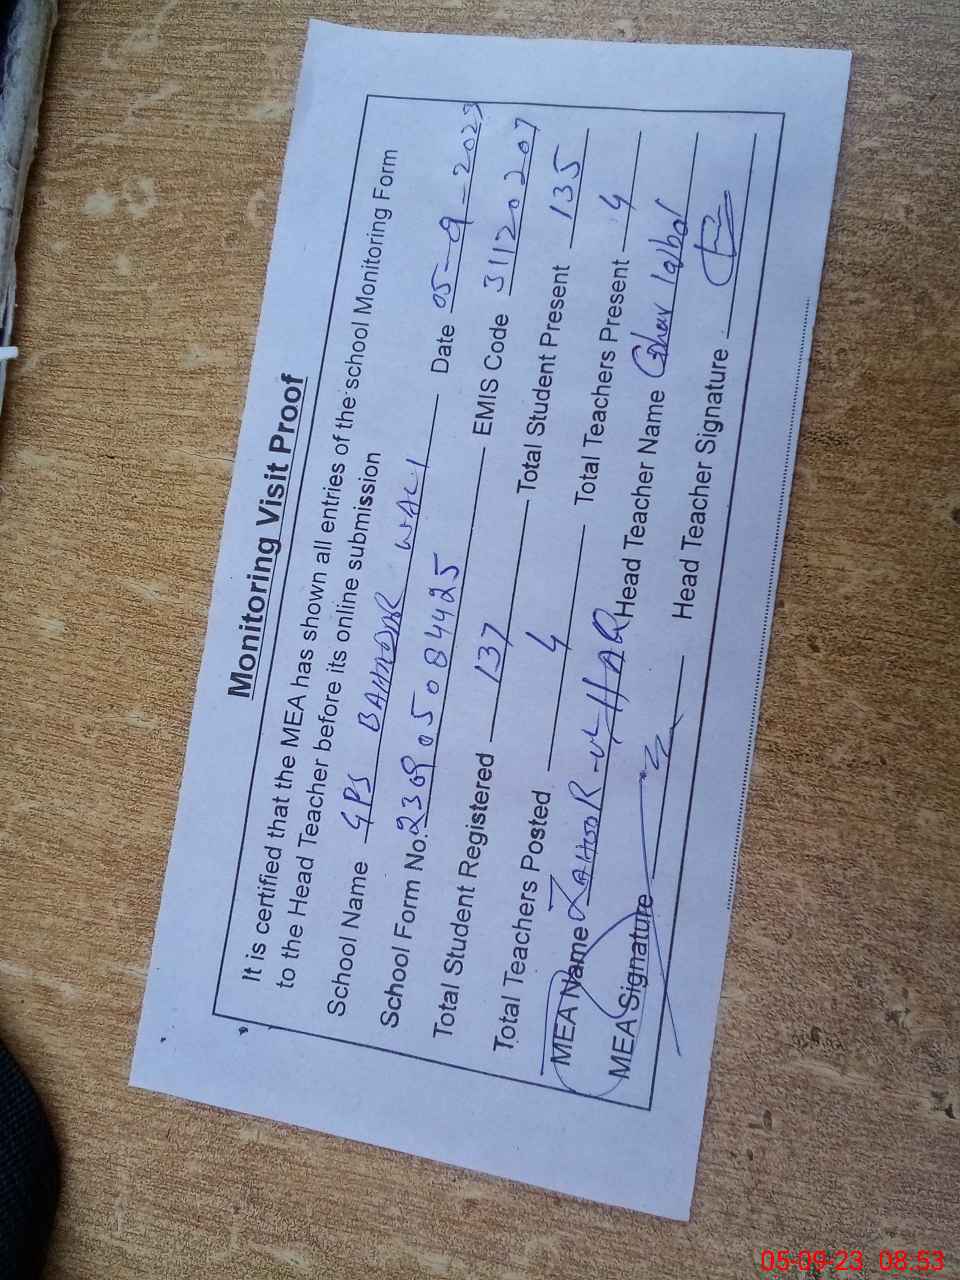 Monitoring Visit Proof
It is certified that the MEA has shown all entries of the school Monitoring Form
to the Head Teacher before its online submission
School Name GPS BAHADAR WALI Date 05-9-2023
School Form No. 230905084425 EMIS Code 31120207
Total Student Registered 137 Total Student Present 135
Total Teachers Posted 4 Total Teachers Present 4
MEA Name ZAHOOR-ul-HAQ Head Teacher Name
MEA Signature Head Teacher Signature
05-09-23 08:53